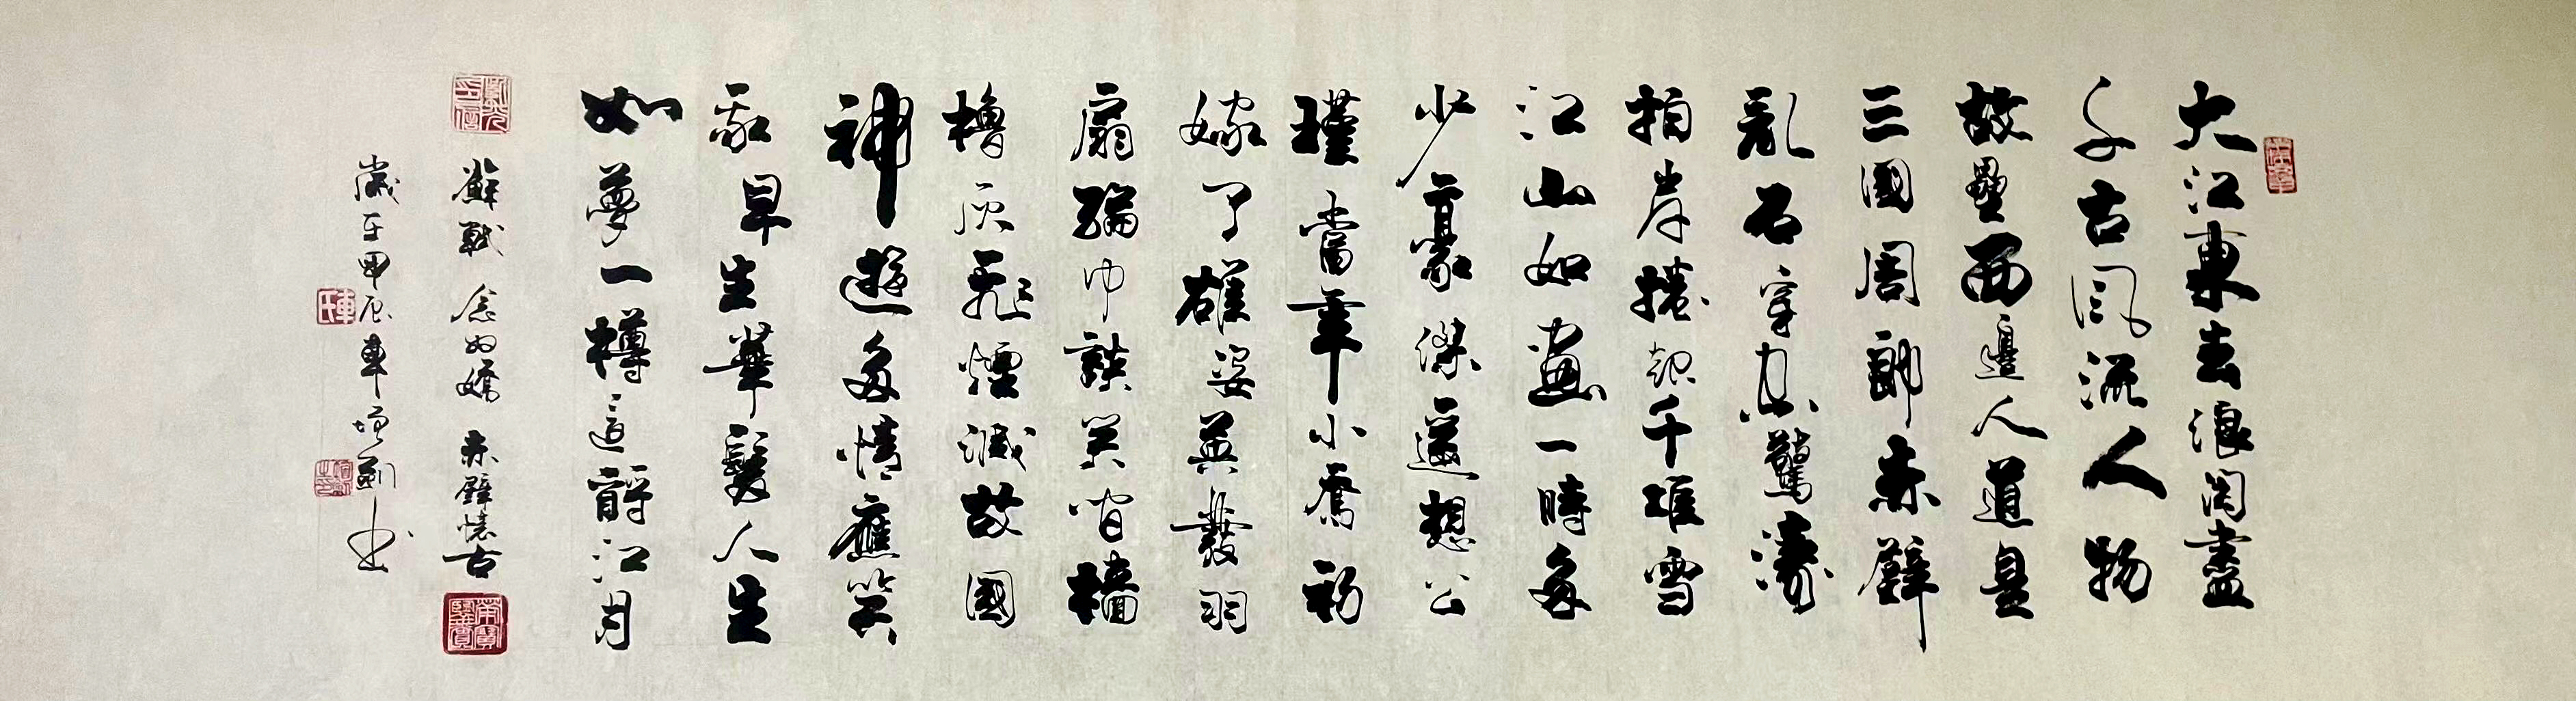 大江東去浪淘盡
千古風流人物
故壘西邊人道是
三國周郎赤壁
亂石穿空驚濤
拍岸捲起千堆雪
江山如畫一時多
少豪傑遙想公
瑾當年小喬初
嫁了雄姿英發羽
扇綸巾談笑間檣
櫓灰飛煙滅故國
神遊多情應笑
我早生華髮人生
如夢一樽還酹江月
蘇軾 念奴嬌 赤壁懷古
歲在甲辰車增書
車氏